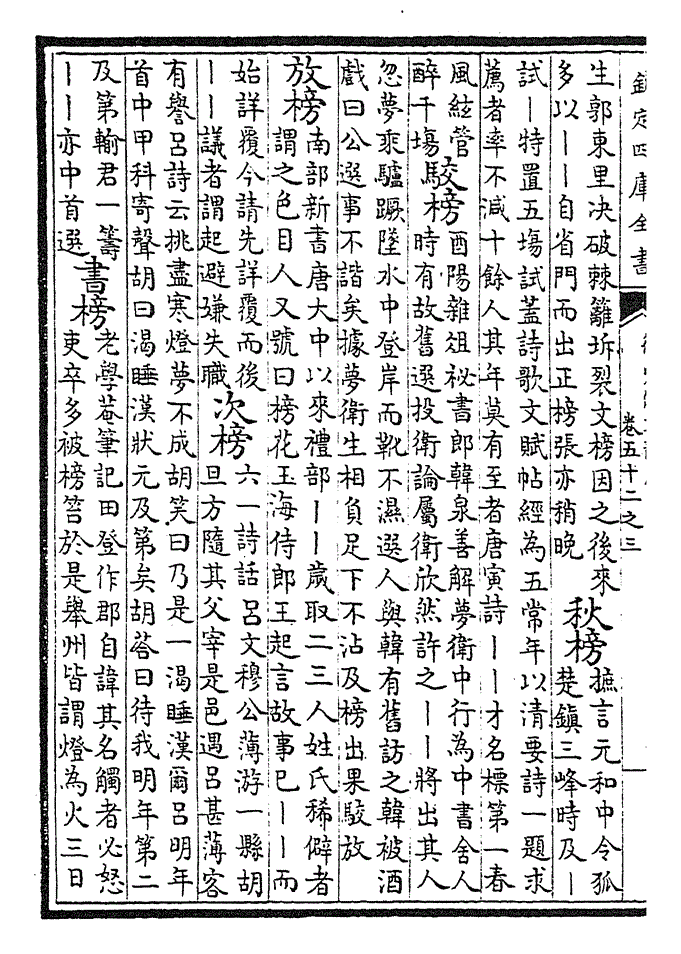 欽定四庫全書
卷五十二之三
生郭東里决破棘籬坼裂文榜因之後來
多以丨丨自省門而出正榜張亦稍晚
秋榜
摭言元和中令狐
楚鎮三峰時及丨
試丨特置五塲試蓋詩歌文賦帖經為五常年以清要詩一題求
薦者率不減十餘人其年莫有至者唐寅詩丨丨才名標第一春
風絃管
醉千塲
駮榜
酉陽雜俎祕書郎韓泉善解夢衛中行為中書舍人
時有故舊選投衛論屬衛欣然許之丨丨將出其人
忽夢乘驢蹶墜水中登岸而靴不濕選人與韓有舊訪之韓被酒
戲曰公選事不諧矣據夢衛生相負足下不沾及榜出果駮放
放榜
南部新書唐大中以來禮部丨丨歲取二三人姓氏稀僻者
謂之色目人又號曰榜花玉海侍郎王起言故事已丨丨而
始詳覆今請先詳覆而後
丨丨議者謂起避嫌失職
次榜
六一詩話呂文穆公薄游一縣胡
旦方隨其父宰是邑遇呂甚薄客
有譽呂詩云挑盡寒燈夢不成胡笑曰乃是一渴睡漢爾呂明年
首中甲科寄聲胡曰渴睡漢狀元及第矣胡荅曰待我明年第二
及第輸君一籌
丨丨亦中首選
書榜
老學菴筆記田登作郡自諱其名觸者必怒
吏卒多被榜笞於是舉州皆謂燈為火三日